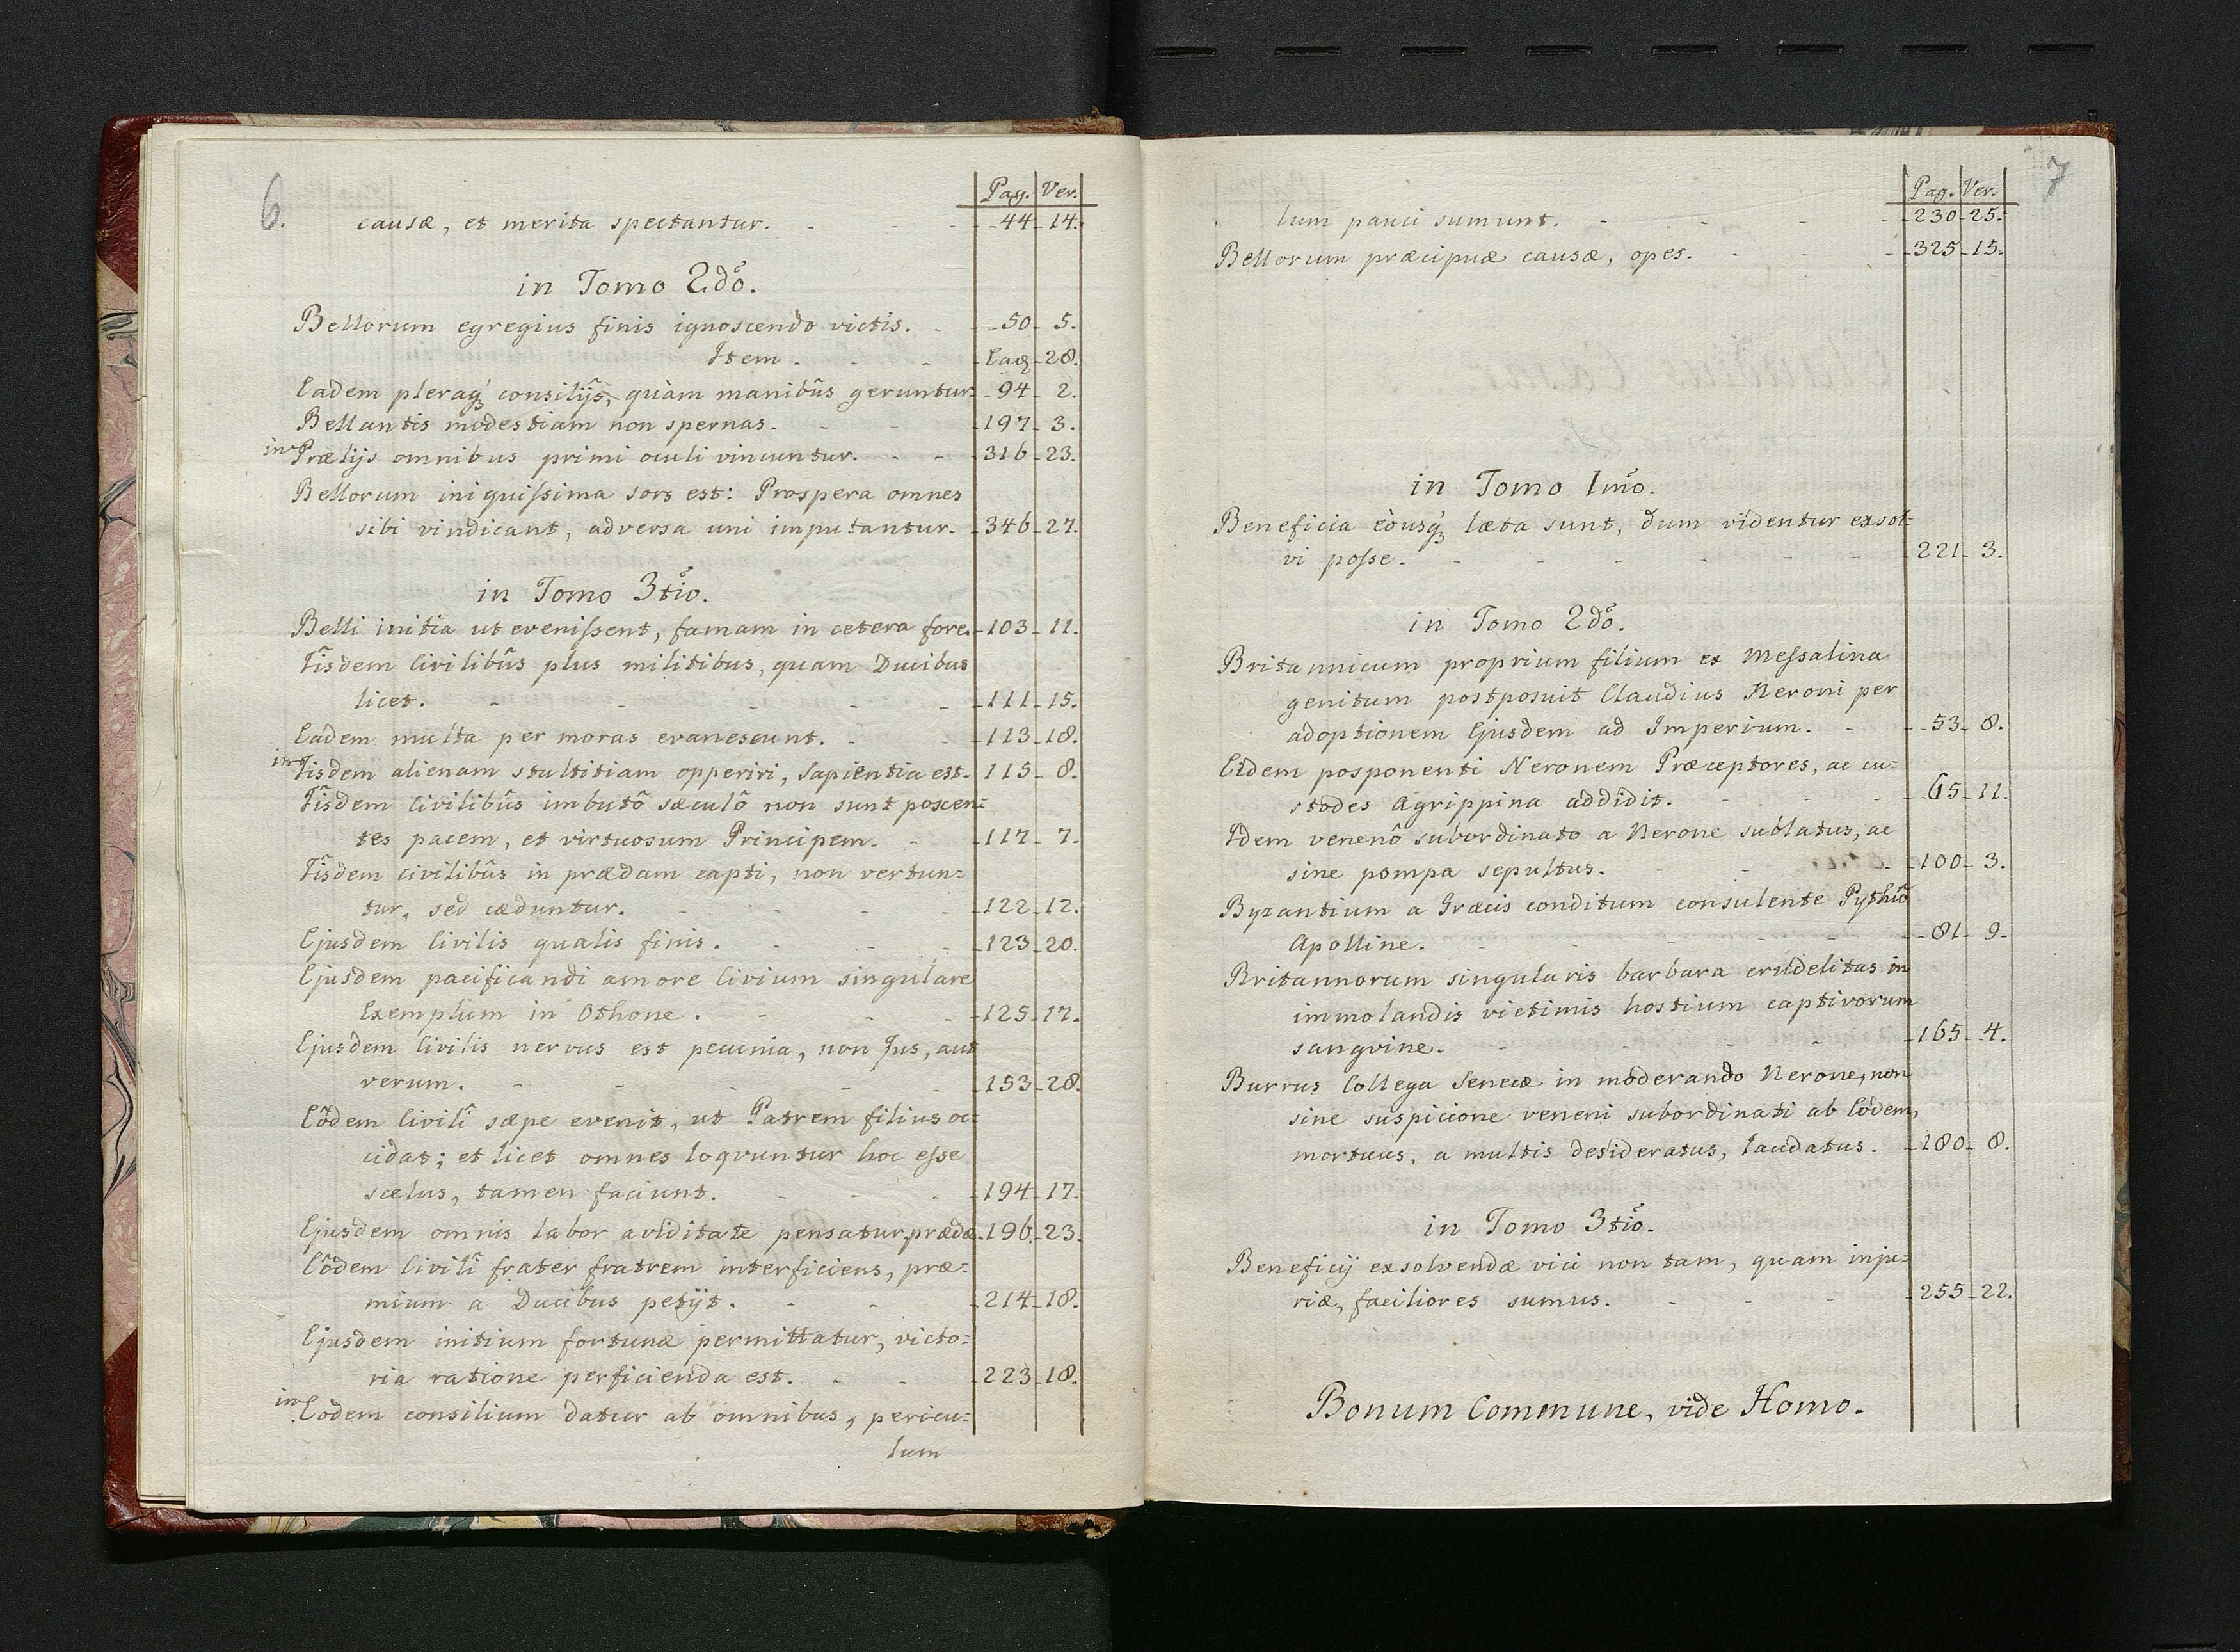 6.
Pag. Ver.
causæ, et merita spectantur. - - - 44 - 14.
in Tomo 2dõ.
Bellorum egregius finis ignoscendo victis. - 50 - 5.
Item. - - - Eaq3 - 28.
Eadem pleraq3 consilijs, quàm manibûs geruntur - 94 - 2.
Bellantis modestiam non spernas. - - - 197 - 3.
in Prælijs omnibus primi oculi vincuntur. - - - 316 - 23.
Bellorum iniquissima sors est: Prospera omnes
sibi vindicant, adversa uni imputantur. - 346 - 27.
in Tomo 3tiõ.
Belli initia ut evenissent, famam in cetera fore. - 103 - 11.
Iîsdem Civilibûs plus militibus, quam Ducibus
licet. - - - - - 111 - 15.
Eadem multa per moras evanescunt. - - 113 - 18.
in Iisdem alienam stultitiam opperiri, Sapientia est. - 115 - 8.
Iîsdem Civilibûs imbutô sæculô non sunt poscen=
tes pacem, et virtuosum Principem. - - 117 - 7.
Iîsdem civilibûs in prædam capti, non vertun=
tur, sed cæduntur. - - - - 122 - 12.
Ejusdem Civilis qualis finis. - - - - 123 - 20.
Ejusdem pacificandi amore Civium singulare
Exemplum in Othone. - - - - 125 - 17.
Ejusdem Civilis nervus est pecunia, non Jus, aut
verum. - - - - - 153 - 28.
Eôdem Civilî sæpe evenit, ut Patrem filius oc=
cidat; et licet omnes loqvuntur hoc esse
scelus, tamen faciunt. - - - 194 - 17.
Ejusdem omnis labor aviditate pensatur prædæ. - 196 - 23.
Eôdem Civilî frater fratrem interficiens, præ=
mium a Ducibus petijt. - - - 214 - 18.
Ejusdem initium fortunæ permittatur, victo=
ria ratione perficienda est. - - - 223 - 18.
in Eodem consilium datur ab omnibus, pericu=
lum
7
Pag. Ver.
lum pauci sumunt. - - - - 230 - 25.
Bellorum præcipuæ causæ, opes. - - - 325 - 15.
in Tomo 1mõ.
Beneficia eòusq3 læta sunt, dum videntur exsol=
vi posse. - - - - - 221 - 3.
in Tomo 2dõ.
Britannicum proprium filium ex Messalina
genitum postposuit Claudius Neroni per
adoptionem Ejusdem ad Imperium. - - 53 - 8.
Eidem posponenti Neronem Præceptores, ac cu=
stodes Agrippina addidit. - - - - 65 - 11.
Idem venenô subordinato a Nerone sublatus, ac
sine pompa sepultus. - - - 100 - 3.
Byzantium a Græcis conditum consulente Pythiô
Apolline. - - - - - 81 - 9.
Britannorum singularis barbara crudelitas in
immolandis victimis hostium captivorum
sangvine. - - - - - 165 - 4.
Burrus Collega Senecæ in moderando Nerone, non
sine suspicione veneni subordinati ab Eôdem,
mortuus, a multis desideratus, laudatus. - 180 - 8.
in Tomo 3tiõ.
Beneficij exsolvendæ vici non tam, quam inju=
riæ, faciliores sumus. - - - - 255 - 22.
Bonum Commune, vide Homo.